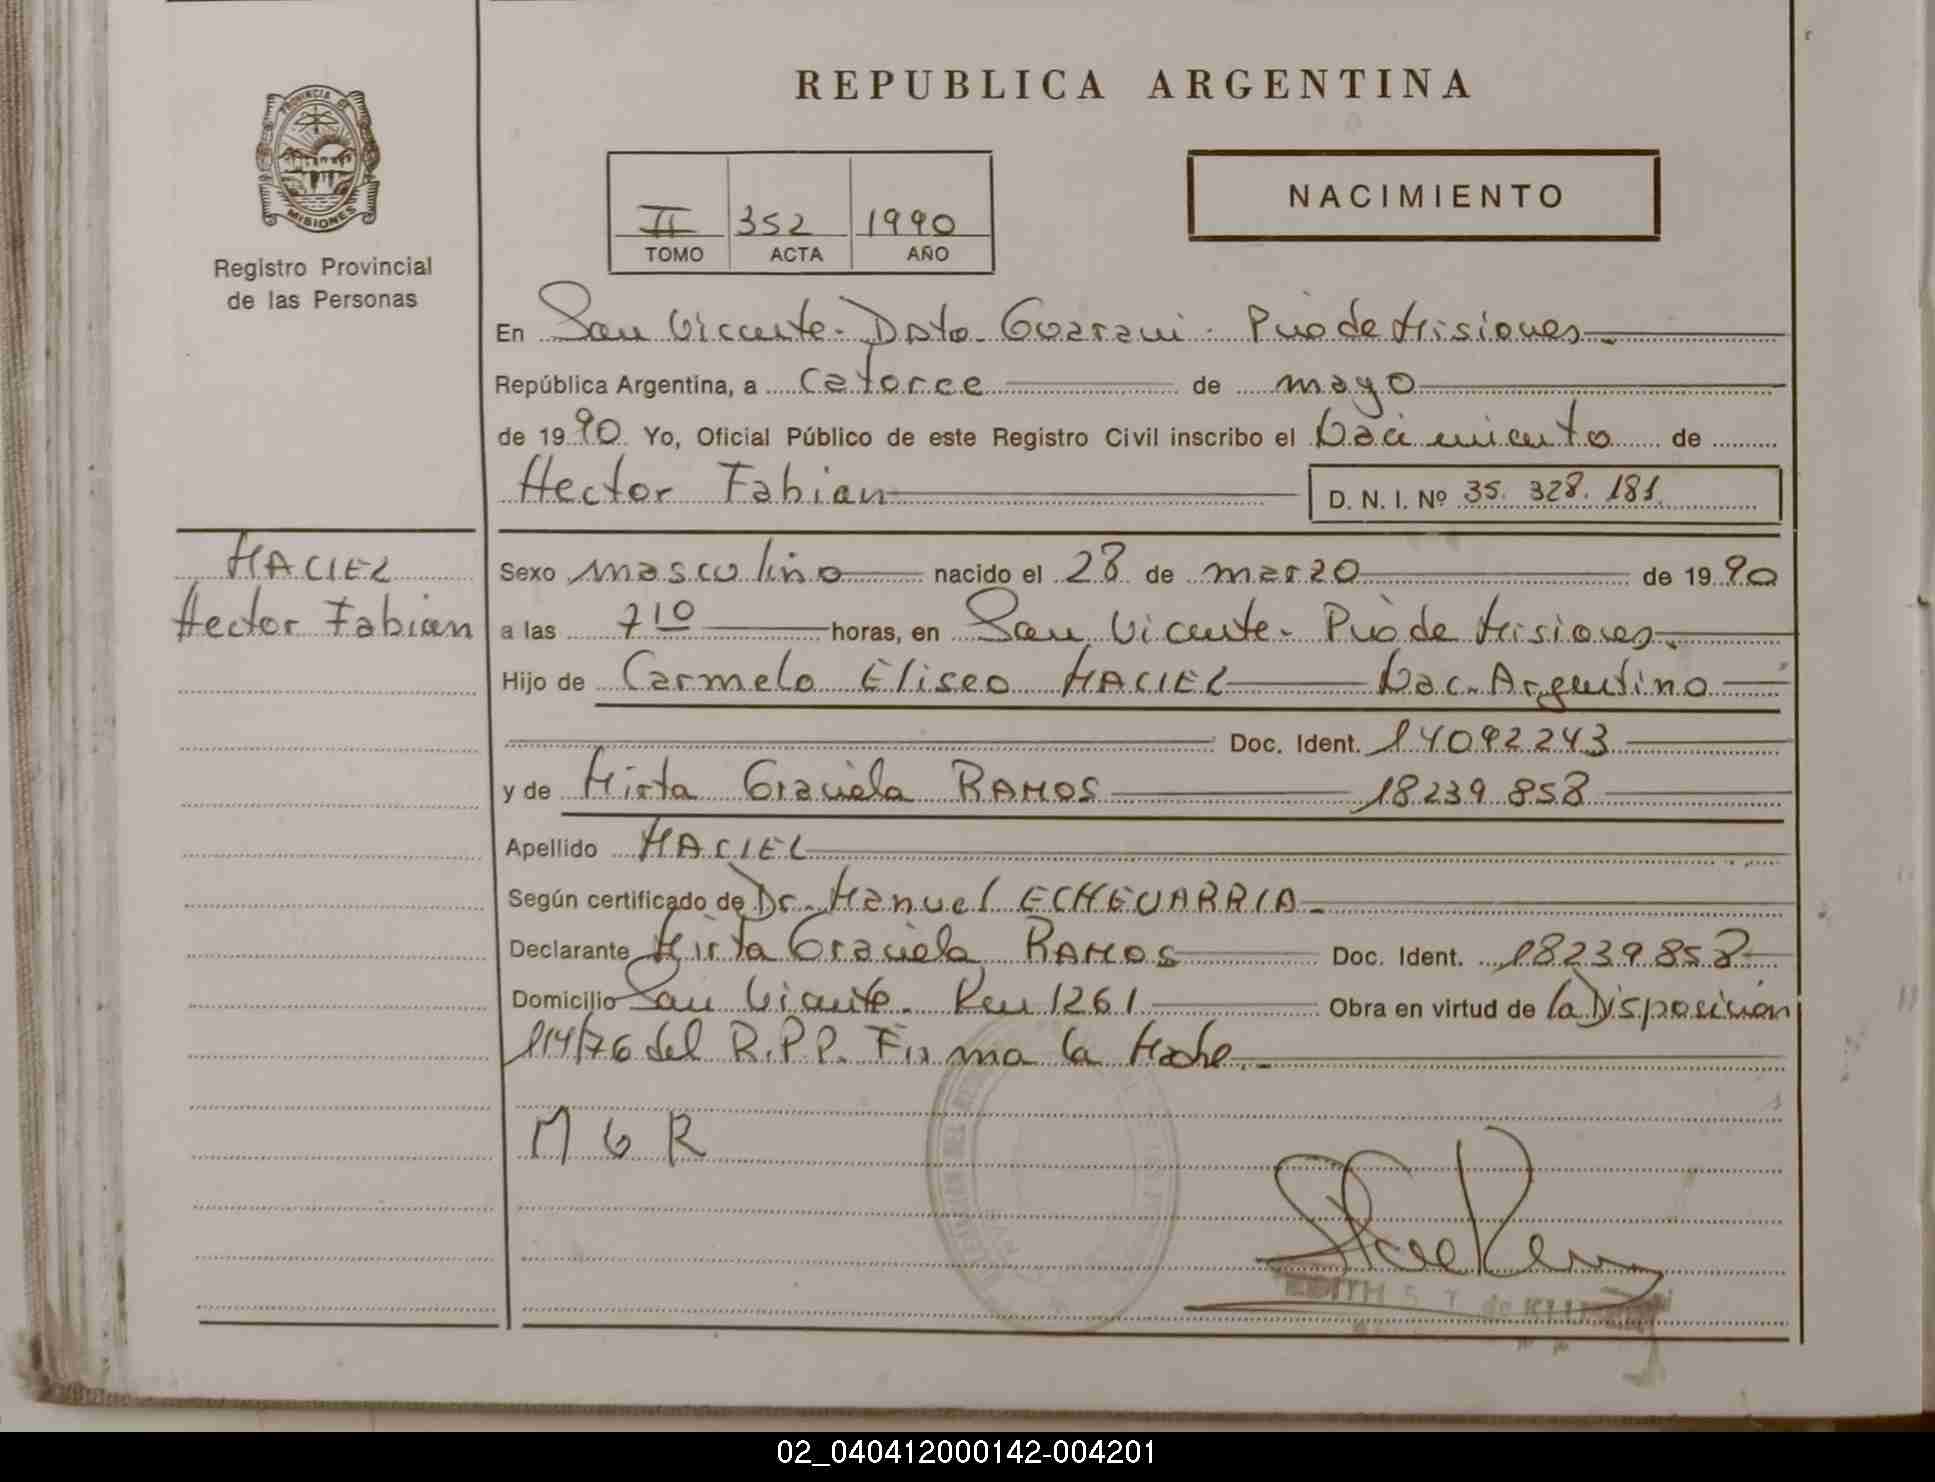 REPUBLICA ARGENTINA
PROVINCIA DE
MISIONES
Registro Provincial
de las Personas
II 352 1990
TOMO ACTA AÑO
NACIMIENTO
En San Vicente - Dpto. Guarani - Pcia de Misiones
República Argentina, a Catorce de mayo
de 1990 Yo, Oficial Público de este Registro Civil inscribo el Nacimiento de
Hector Fabian D. N. I. Nº 35.328.181
MACIEL
Hector Fabian
Sexo masculino nacido el 28 de marzo de 1990
a las 7 10 horas, en San Vicente - Pcia de Misiones
Hijo de Carmelo Eliseo MACIEL Nac. Argentino
Doc. Ident. 14092243
y de Mirta Graciela RAMOS 18239858
Apellido MACIEL
Según certificado de Dr. Manuel ECHEVARRIA
Declarante Mirta Graciela RAMOS Doc. Ident. 18239858
Domicilio San Vicente - Km 1261 Obra en virtud de la Disposición
114/76 del R.P.P. Firma la Madre
M G R
EDITH S. T. de
02_040412000142-004201